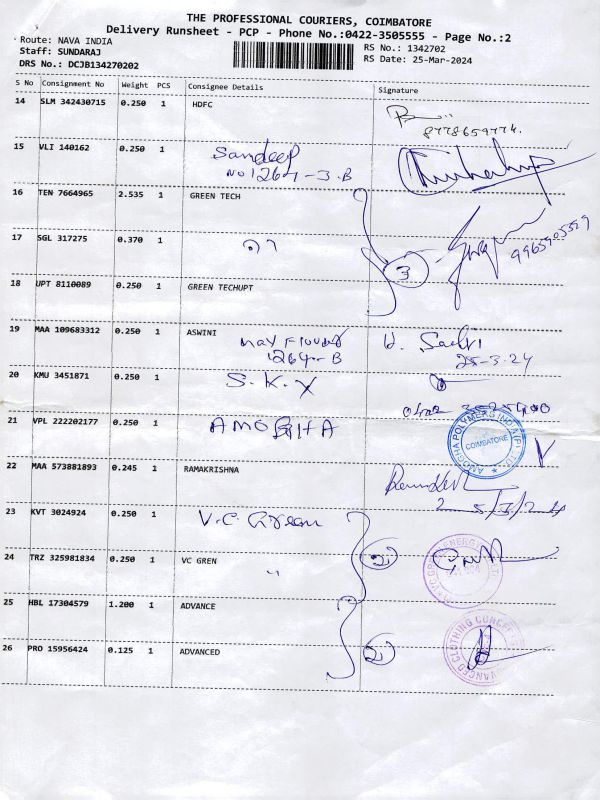 THE PROFESSIONAL COURIERS, COIMBATORE
Delivery Runsheet - PCP - Phone No.:0422-3505555 - Page No.:2
Route: NAVA INDIA
Staff: SUNDARAJ
DRS No.: DCJB134270202
RS No.: 1342702
RS Date: 25-Mar-2024
S No Consignment No Weight PCS Consignee Details Signature
14 SLM 342430715 0.250 1 HDFC
8778659774.
15 VLI 140162 0.250 1 Sandeep
No 1264-3.B
16 TEN 7664965 2.535 1 GREEN TECH
17 SGL 317275 0.370 1
3
9965905359
18 UPT 8110089 0.250 1 GREEN TECHUPT
19 MAA 109683312 0.250 1 ASWINI
May Flower
1264-B
25-3-24
20 KMU 3451871 0.250 1 S.K.X
21 VPL 222202177 0.250 1
COIMBATORE
22 MAA 573881893 0.245 1 RAMAKRISHNA
25/3/24
23 KVT 3024924 0.250 1 V.C. Green
24 TRZ 325981834 0.250 1 VC GREN
2
25 HBL 17304579 1.200 1 ADVANCE
26 PRO 15956424 0.125 1 ADVANCED
2